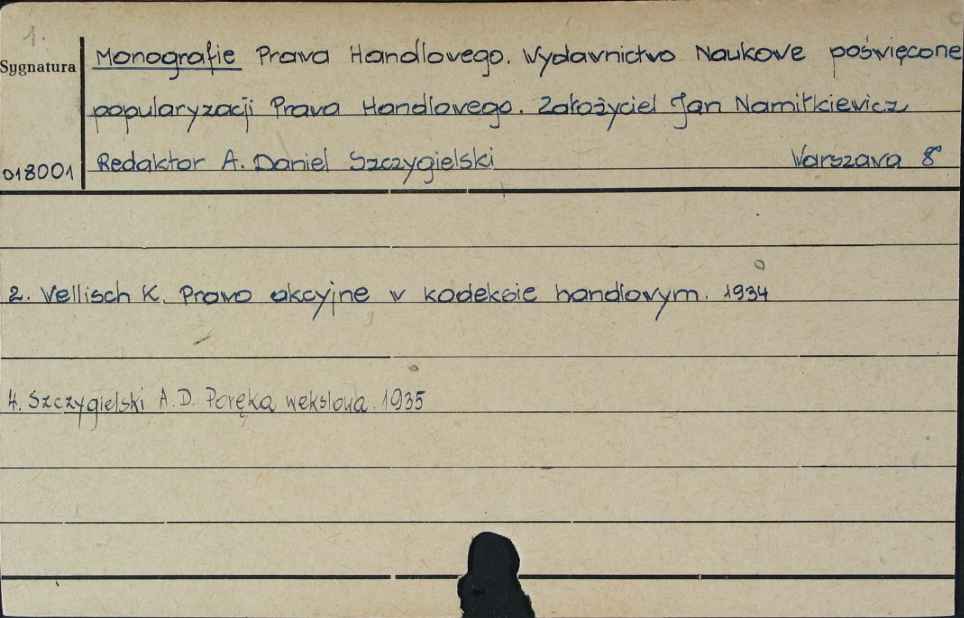 1.
Sygnatura
Monografie Prawa Handlowego. Wydawnictwo Naukowe poświęcone
popularyzacji Prawa Handlowego. Założyciel Jan Namitkiewicz
018001
Redaktor A. Daniel Szczygielski Warszawa 8°
2. Wellisch K. Prawo akcyjne w kodeksie handlowym. 1934
4. Szczygielski A.D. Poręka wekslowa. 1935